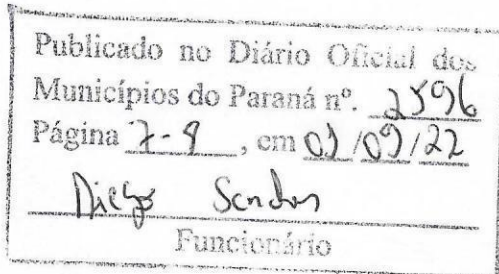 Publicado no Diário Oficial dos
Municípios do Paraná nº. 2596
Página 7-9, em 01/09/22
Diego Sandos
Funcionário